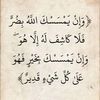 وَإِنْ يَمْسَسْكَ اللَّهُ بِضُرٍّ
فَلَا كَاشِفَ لَهُ إِلَّا هُوَ
وَإِنْ يَمْسَسْكَ بِخَيْرٍ فَهُوَ
عَلَىٰ كُلِّ شَيْءٍ قَدِيرٌ